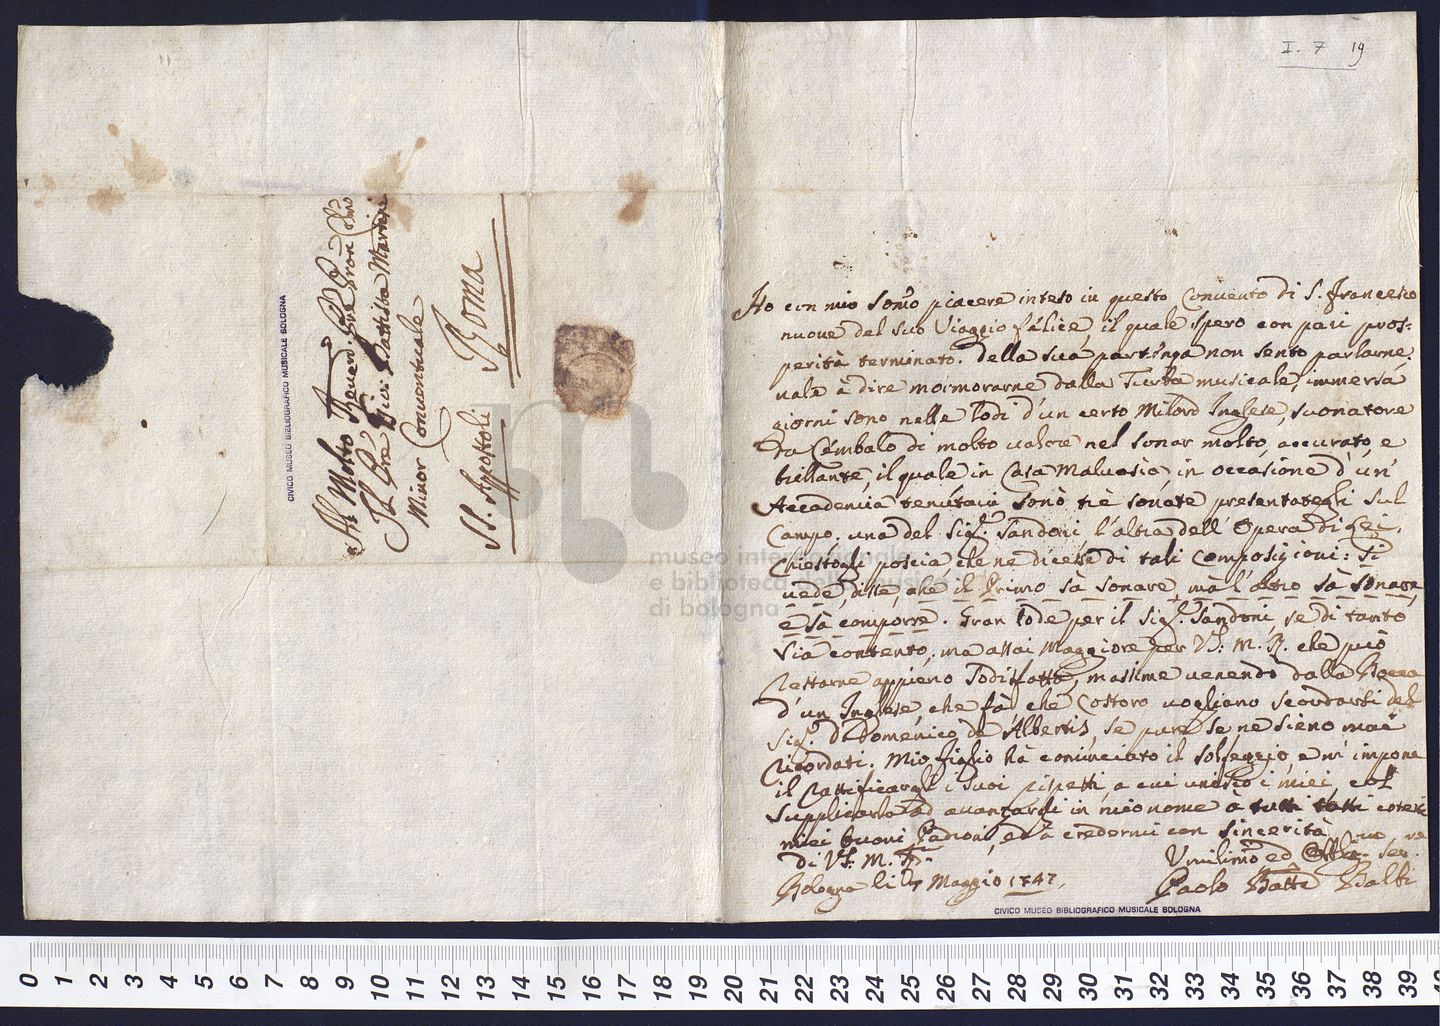 I. 7 19
Ho con mio som͞o piacere inteso in questo Convento di S. Francesco
nuove del suo Viaggio felice, il quale spero con pari pros=
perità terminato. Della sua partenza non sento parlarne,
vale à dire mormorarne dalla Turba musicale, immersa
giorni sono nelle lodi d'un certo Milord Inglese, suonatore
da Cembalo di molto valore nel sonar molto, accurato e
brillante, il quale in Casa Malvasia in occasione d'un'
Accademia tenutavi sonò trè sonate presentategli sul
Campo. una del Sig.r Sandoni, l'altra dell'Opera di Lei.
Chiestogli poscia che ne dicesse di tali Composizioni: Si
vede, disse, che il Primo sà sonare, mà l'altro sà sonare,
e sà comporre. Gran lode per il Sig.r Sandoni, se di tanto
sia contento, ma assai Maggiore per V.S. M. R. che può
restarne appieno sodisfatto, massime venendo dalla Bocca
d'un Inglese, che fà che Costoro vogliano scordarsi del
Sig.r D. Domenico de Albertis, se pure se ne sieno mai
ricordati. Mio figlio hà cominciato il solfeggio, e m'impone
il rattificargli i suoi rispetti, a cui unisco i miei, col
supplicarla ad avanzarli in mio nome à tutti cotesti
miei buoni Padroni, ed à credermi con sincerità
di V.S. M. R.
Bologna li Maggio 1747.
Umilimo ed Obb. Ser.
Paolo Batta Balbi
CIVICO MUSEO BIBLIOGRAFICO MUSICALE BOLOGNA
Al Molto Reverd.
Il Pre Gio: Battista Martini
Minor Conventuale
SS. Appostoli
Roma
CIVICO MUSEO BIBLIOGRAFICO MUSICALE BOLOGNA
museo internazionale
e biblioteca della musica
di bologna
0 1 2 3 4 5 6 7 8 9 10 11 12 13 14 15 16 17 18 19 20 21 22 23 24 25 26 27 28 29 30 31 32 33 34 35 36 37 38 39